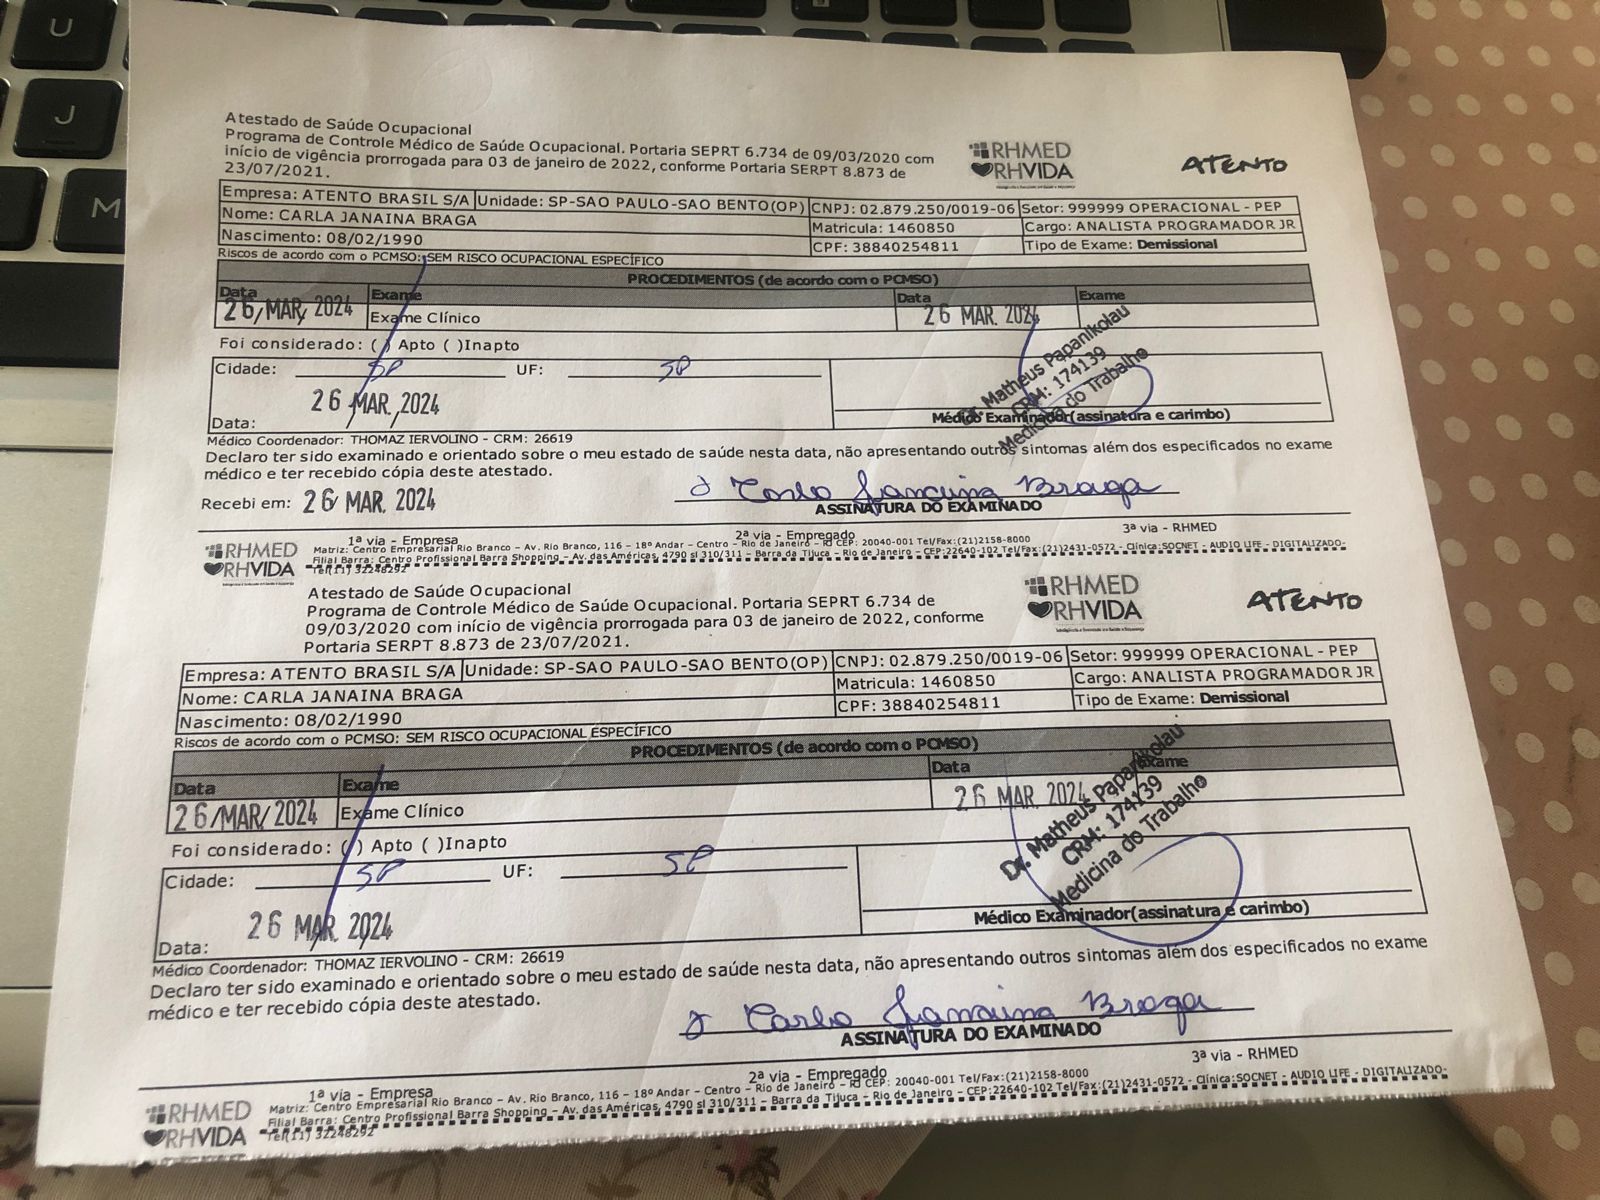 U
J
M
Atestado de Saúde Ocupacional
Programa de Controle Médico de Saúde Ocupacional. Portaria SEPRT 6.734 de 09/03/2020 com
início de vigência prorrogada para 03 de janeiro de 2022, conforme Portaria SERPT 8.873 de
23/07/2021.
RHMED
RHVIDA
ATENTO
Empresa: ATENTO BRASIL S/A Unidade: SP-SAO PAULO-SAO BENTO(OP) CNPJ: 02.879.250/0019-06 Setor: 999999 OPERACIONAL - PEP
Nome: CARLA JANAINA BRAGA Matricula: 1460850 Cargo: ANALISTA PROGRAMADOR JR
Nascimento: 08/02/1990 CPF: 38840254811 Tipo de Exame: Demissional
Riscos de acordo com o PCMSO: SEM RISCO OCUPACIONAL ESPECÍFICO
PROCEDIMENTOS (de acordo com o PCMSO)
Data Exame Data Exame
26/MAR/2024 Exame Clínico 26 MAR. 2024
Foi considerado: ( ) Apto ( )Inapto
Cidade: SP UF: SP
Dr. Matheus Papanikolau
CRM: 174139
Medicina do Trabalho
Data: 26 MAR. 2024
Médico Examinador(assinatura e carimbo)
Médico Coordenador: THOMAZ IERVOLINO - CRM: 26619
Declaro ter sido examinado e orientado sobre o meu estado de saúde nesta data, não apresentando outros sintomas além dos especificados no exame
médico e ter recebido cópia deste atestado.
Recebi em: 26 MAR. 2024 Carla Janaina Braga
ASSINATURA DO EXAMINADO
1ª via - Empresa 2ª via - Empregado 3ª via - RHMED
RHMED
RHVIDA
Matriz: Centro Empresarial Rio Branco – Av. Rio Branco, 116 – 18º Andar – Centro – Rio de Janeiro – RJ CEP: 20040-001 Tel/Fax:(21)2158-8000
Filial Barra: Centro Profissional Barra Shopping – Av. das Américas, 4790 sl 310/311 – Barra da Tijuca – Rio de Janeiro – CEP:22640-102 Tel/Fax:(21)2431-0572 - Clínica:SOCNET - AUDIO LIFE - DIGITALIZADO-
Tel(11) 32248292
Atestado de Saúde Ocupacional
Programa de Controle Médico de Saúde Ocupacional. Portaria SEPRT 6.734 de
09/03/2020 com início de vigência prorrogada para 03 de janeiro de 2022, conforme
Portaria SERPT 8.873 de 23/07/2021.
RHMED
RHVIDA
ATENTO
Empresa: ATENTO BRASIL S/A Unidade: SP-SAO PAULO-SAO BENTO(OP) CNPJ: 02.879.250/0019-06 Setor: 999999 OPERACIONAL - PEP
Nome: CARLA JANAINA BRAGA Matricula: 1460850 Cargo: ANALISTA PROGRAMADOR JR
Nascimento: 08/02/1990 CPF: 38840254811 Tipo de Exame: Demissional
Riscos de acordo com o PCMSO: SEM RISCO OCUPACIONAL ESPECÍFICO
PROCEDIMENTOS (de acordo com o PCMSO)
Data Exame Data Exame
26/MAR/2024 Exame Clínico 26 MAR. 2024
Foi considerado: ( ) Apto ( )Inapto
Cidade: SP UF: SP
Dr. Matheus Papanikolau
CRM: 174139
Medicina do Trabalho
Data: 26 MAR. 2024
Médico Examinador(assinatura e carimbo)
Médico Coordenador: THOMAZ IERVOLINO - CRM: 26619
Declaro ter sido examinado e orientado sobre o meu estado de saúde nesta data, não apresentando outros sintomas além dos especificados no exame
médico e ter recebido cópia deste atestado.
Carla Janaina Braga
ASSINATURA DO EXAMINADO
1ª via - Empresa 2ª via - Empregado 3ª via - RHMED
RHMED
RHVIDA
Matriz: Centro Empresarial Rio Branco – Av. Rio Branco, 116 – 18º Andar – Centro – Rio de Janeiro – RJ CEP: 20040-001 Tel/Fax:(21)2158-8000
Filial Barra: Centro Profissional Barra Shopping – Av. das Américas, 4790 sl 310/311 – Barra da Tijuca – Rio de Janeiro – CEP:22640-102 Tel/Fax:(21)2431-0572 - Clínica:SOCNET - AUDIO LIFE - DIGITALIZADO-
Tel(11) 32248292